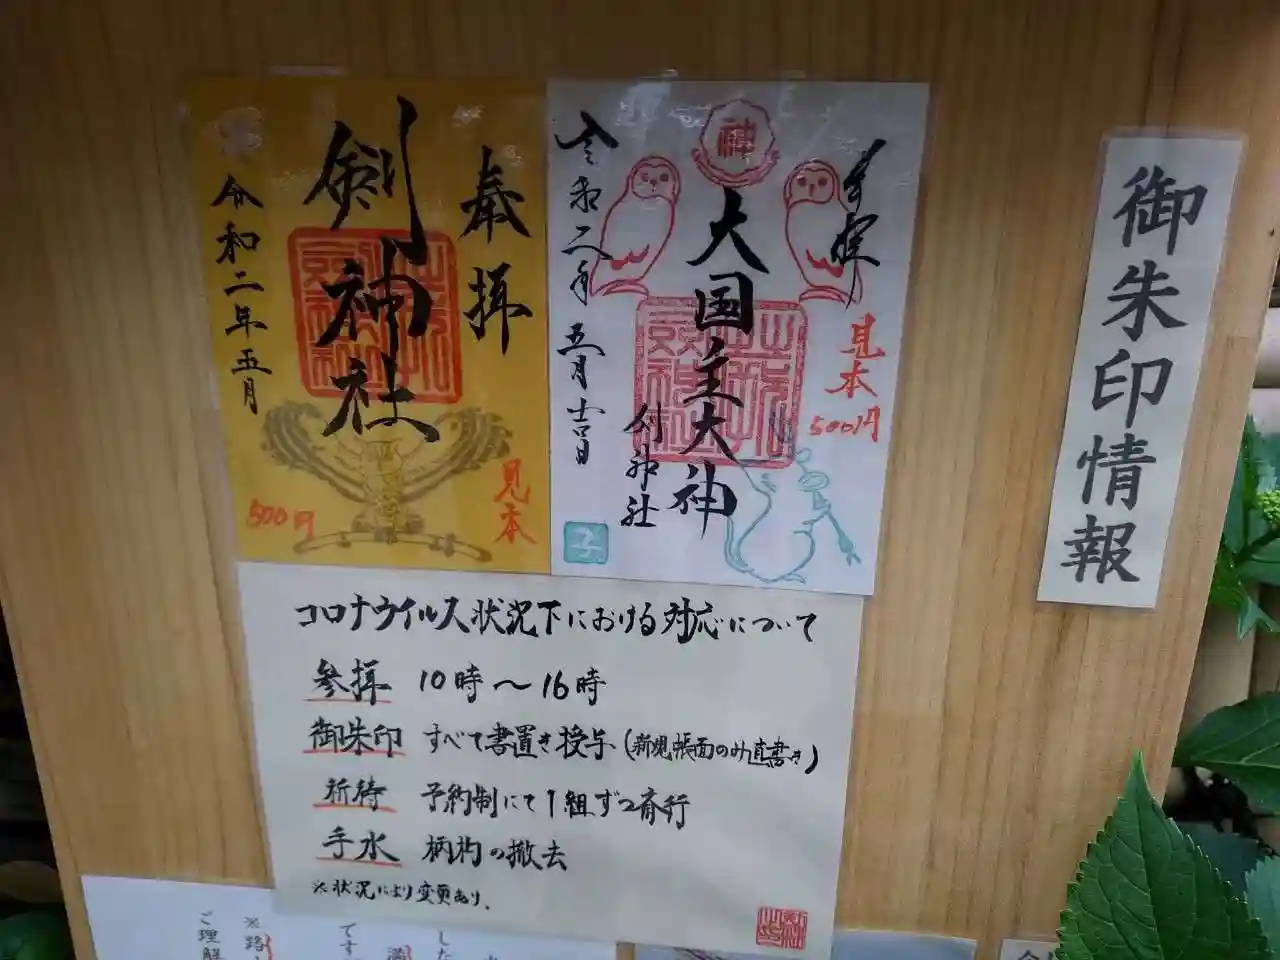 御朱印情報
奉拝
剣神社
令和二年五月
見本
500円
奉拝
神
大国主大神
剣神社
令和二年五月吉日
見本
500円
子
コロナウイルス状況下における対応について
参拝 10時〜16時
御朱印 すべて書置き授与(新規帳面のみ直書き)
祈祷 予約制にて1組ずつ斎行
手水 柄杓の撤去
※状況により変更あり。
した
です
※路
ご理解